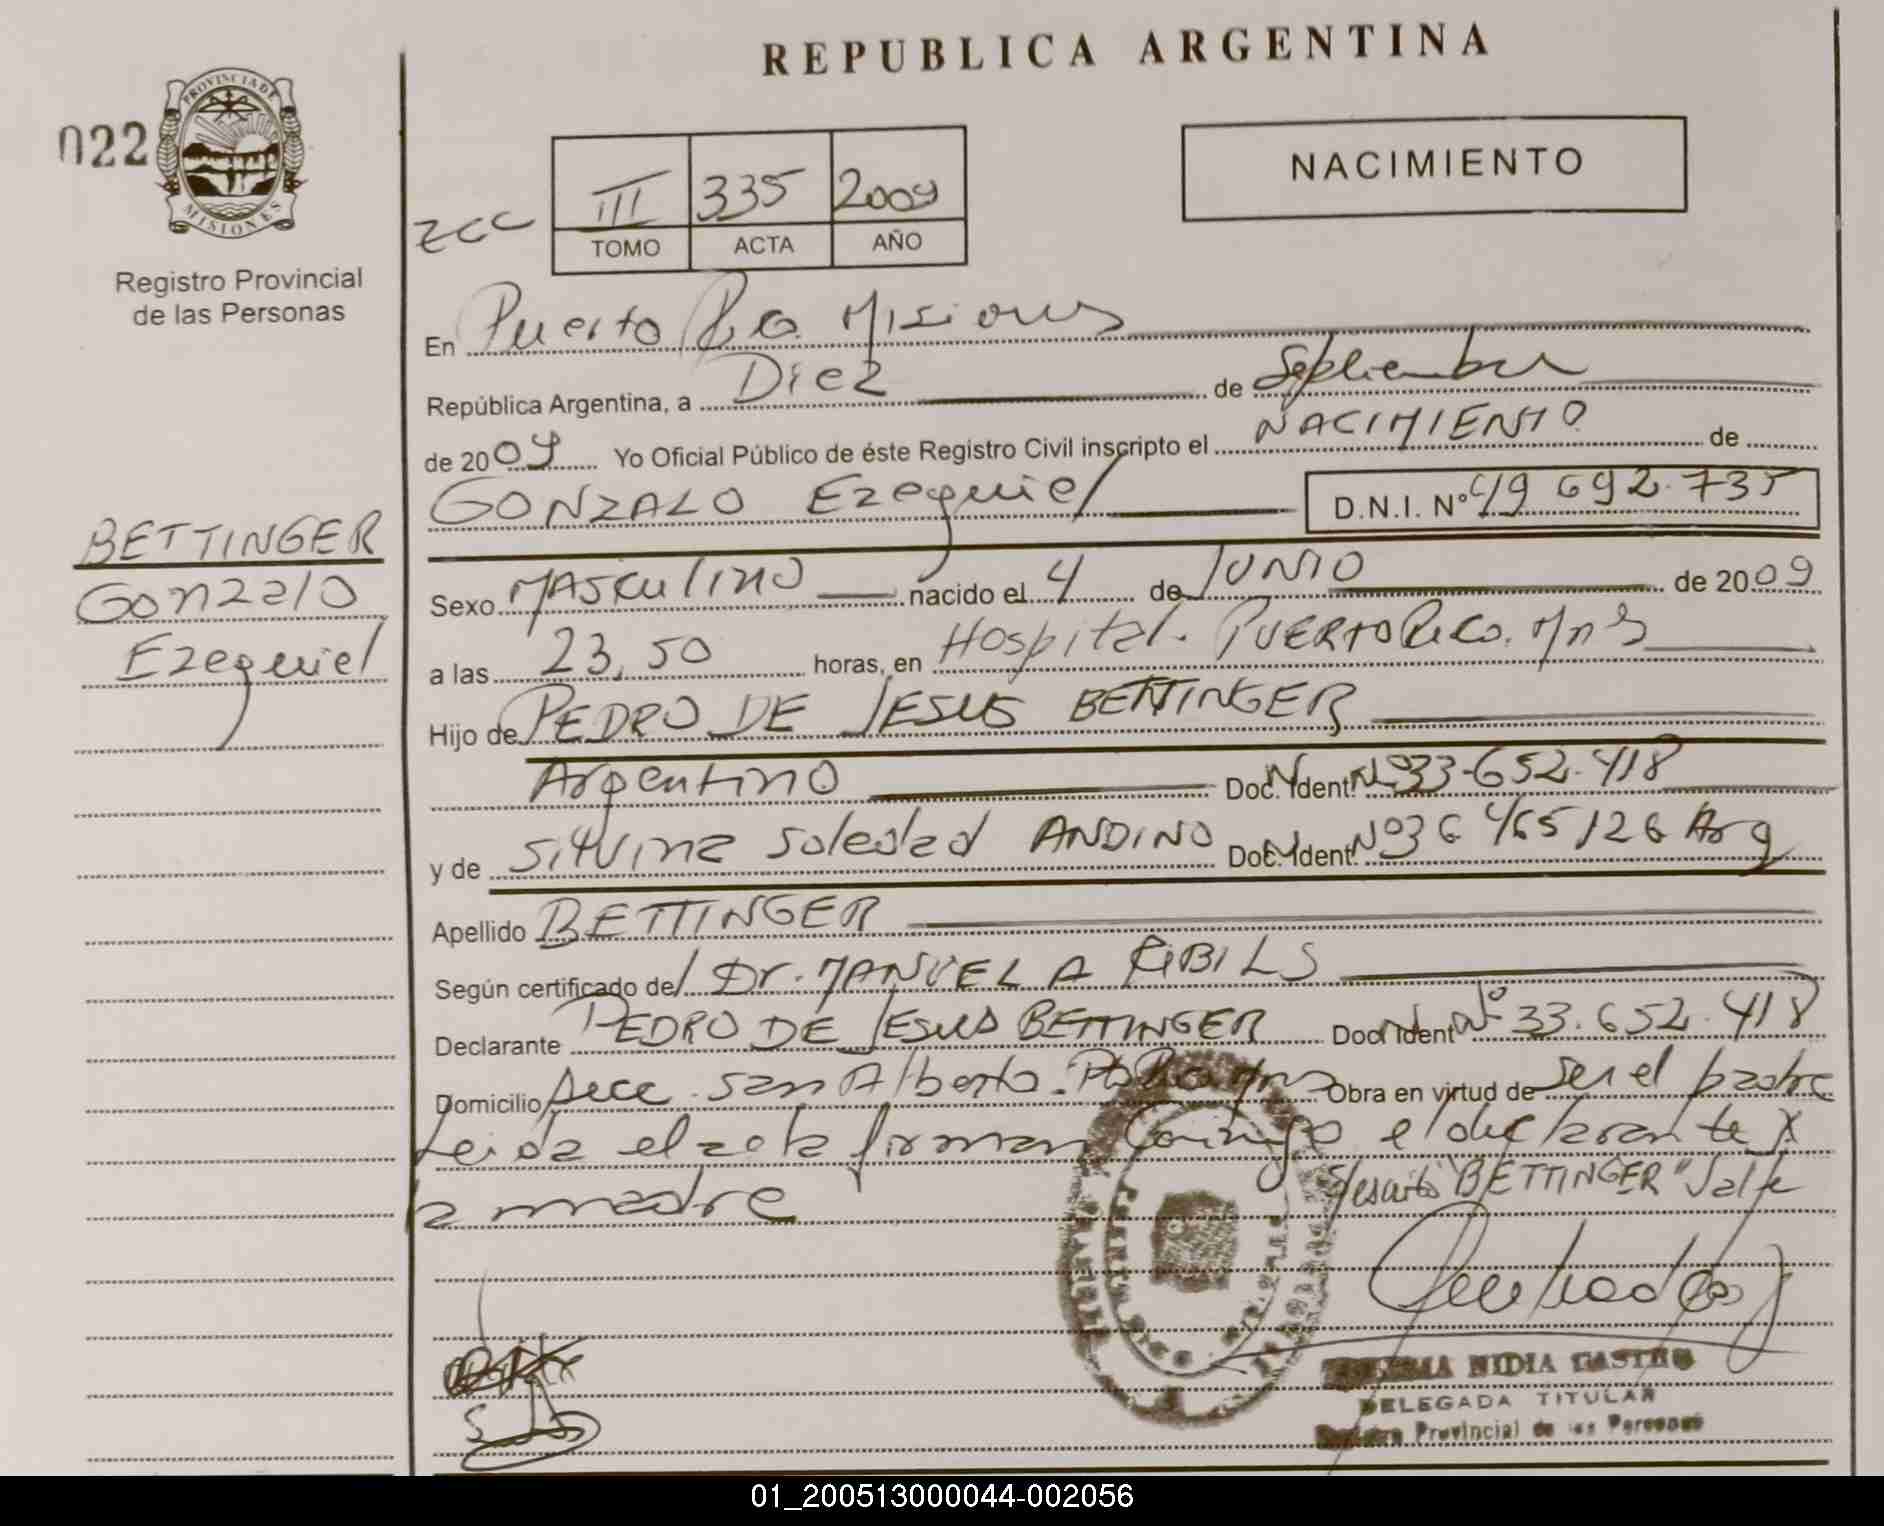 REPUBLICA ARGENTINA
022
PROVINCIA DE
MISIONES
Registro Provincial
de las Personas
NACIMIENTO
III 335 2009
TOMO ACTA AÑO
En Puerto Rico Misiones
República Argentina, a Diez de Septiembre
de 2009 Yo Oficial Público de éste Registro Civil inscripto el NACIMIENTO de
GONZALO Ezequiel D.N.I. Nº 49 692.735
BETTINGER
Gonzalo
Ezequiel
Sexo Masculino nacido el 4 de JUNIO de 2009
a las 23,50 horas, en Hospital. PUERTO Rico. Mns
Hijo de PEDRO DE JESUS BETTINGER
Argentino Doc. Ident. Nº 33.652.418
y de Silvina Soledad ANDINO Doc. Ident. Nº 36 465 126 Arg
Apellido BETTINGER
Según certificado del Dr. MANUEL A RIBILS
Declarante PEDRO DE JESUS BETTINGER Doc Ident Nº 33.652.418
Domicilio Secc. San Alberto. Pto Rico Mns Obra en virtud de ser el padre
Leida el acta firman conmigo el declarante y
la madre S/escrito "BETTINGER" Vale
NIDIA CASTRO
DELEGADA TITULAR
Registro Provincial de las Personas
01_200513000044-002056